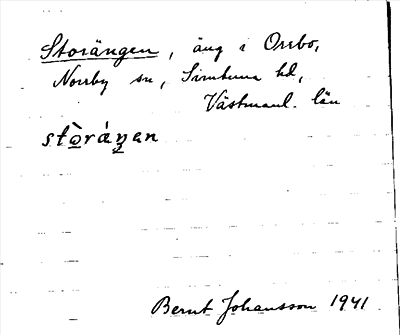 Storängen, äng i Orrbo,
Norrby sn, Simtuna hd,
Västmanl. län
stòráŋen
Bernt Johansson 1941